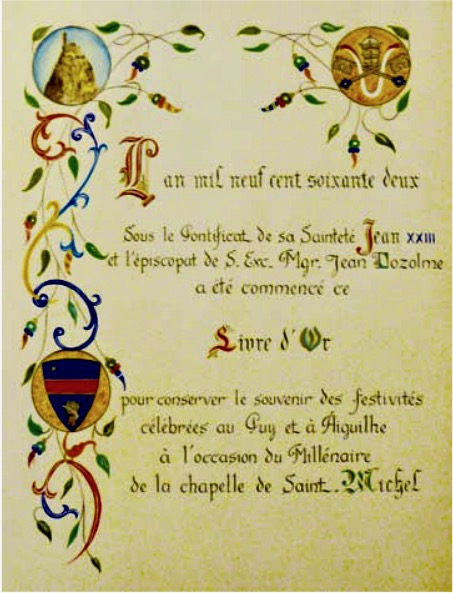 L an mil neuf cent soixante deux
Sous le Pontificat de sa Sainteté Jean XXIII
et l'épiscopat de S. Exc. Mgr. Jean Dozolme
a été commencé ce
Livre d'Or
pour conserver le souvenir des festivités
célébrées au Puy et à Aiguilhe
à l'occasion du Millénaire
de la chapelle de Saint-Michel